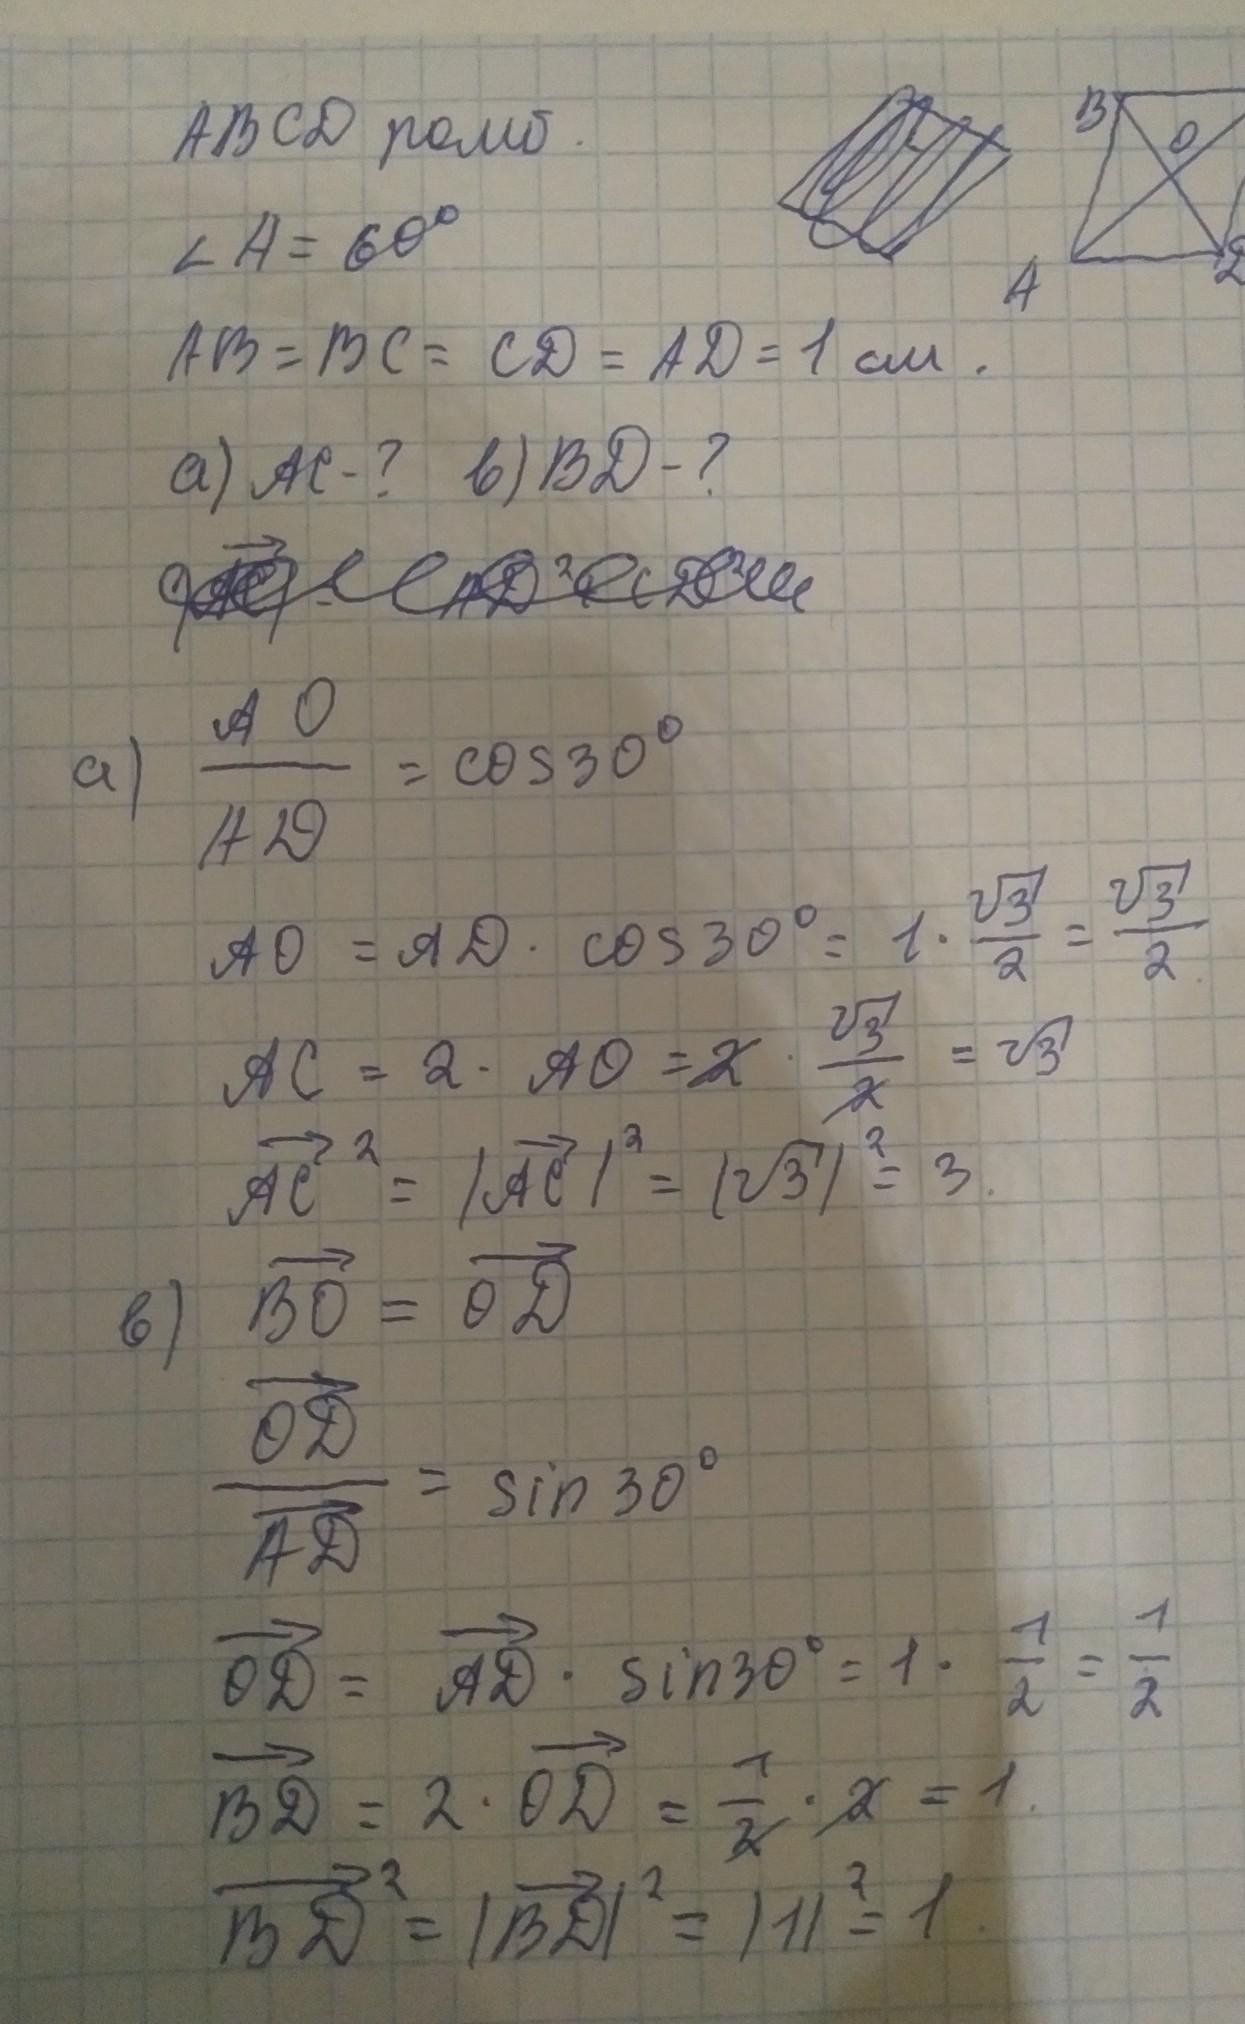 ABCD ромб.
∠A = 60°
AB = BC = CD = AD = 1 см.
а) AC - ? в) BD - ?
B
O
A
D
а) AO / AD = cos30°
AO = AD · cos30° = 1 · √3/2 = √3/2
AC = 2 · AO = 2 · √3/2 = √3
AC⃗² = |AC⃗|² = |√3|² = 3.
в) BO⃗ = OD⃗
OD⃗ / AD⃗ = sin30°
OD⃗ = AD⃗ · sin30° = 1 · 1/2 = 1/2
BD⃗ = 2 · OD⃗ = 1/2 · 2 = 1.
BD⃗² = |BD⃗|² = |1|² = 1.